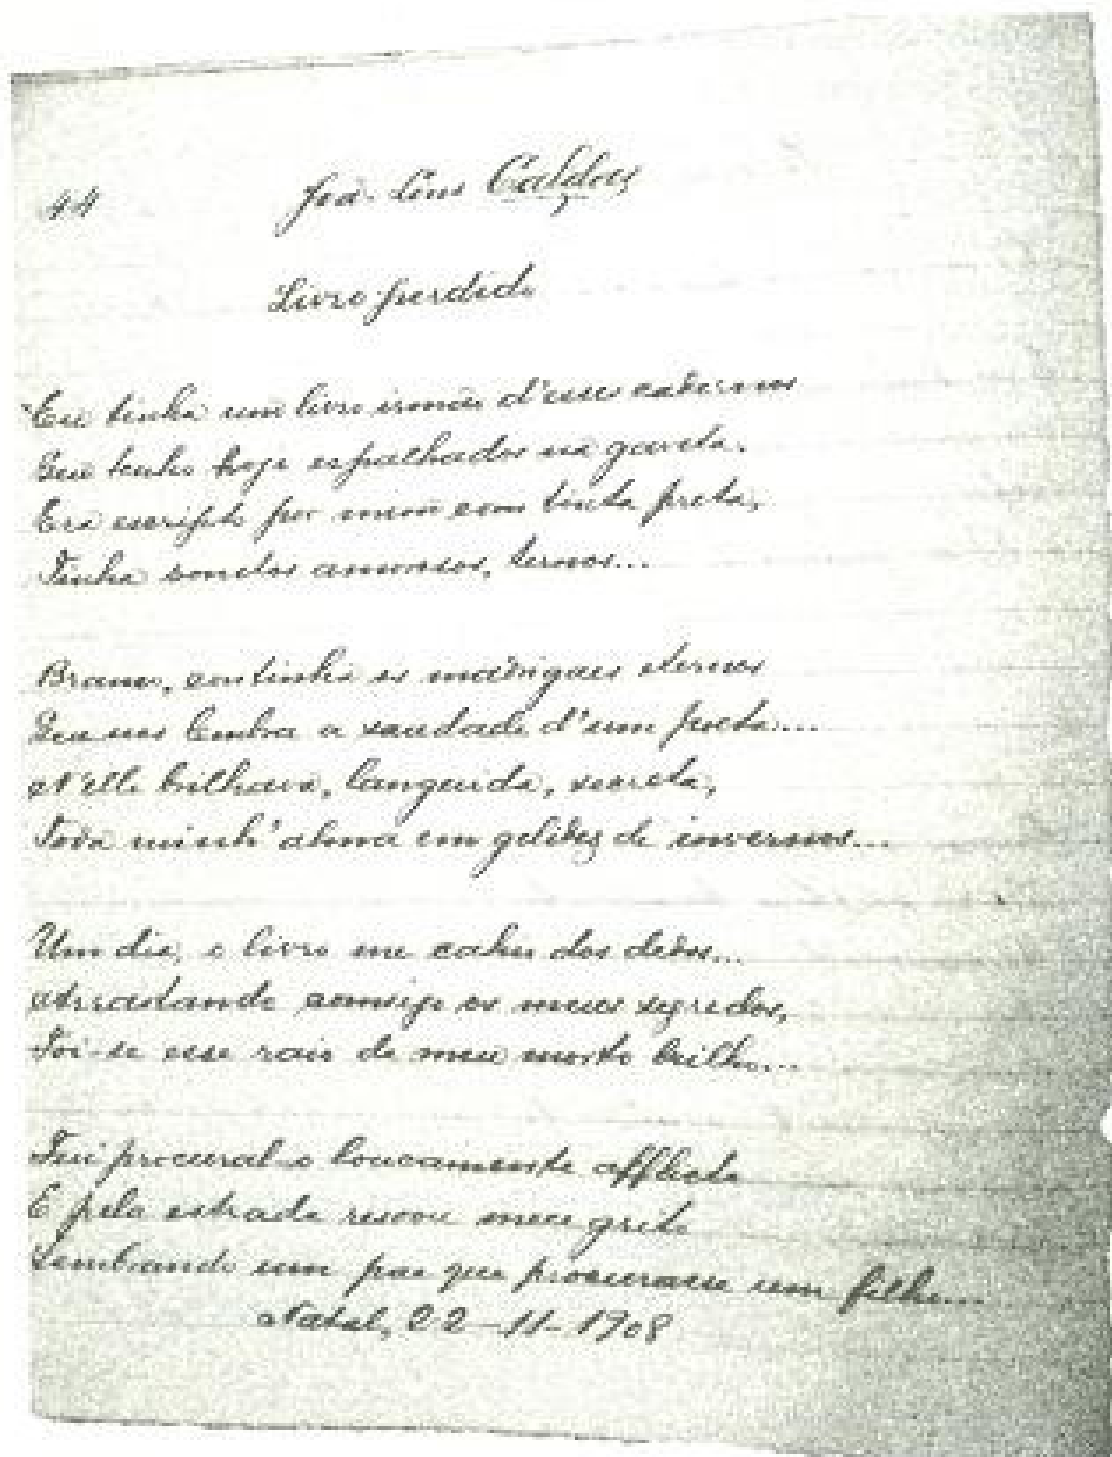 44
João Lins Caldas
Livro perdido
Eu tinha um livro irmão d'uns cadernos
Que tenho hoje espalhados na gaveta.
Era escripto por mim com tinta preta,
Tinha sonetos amorosos, ternos...
Branco, continha os madrigaes eternos
Que nos lembra a saudade d'um poeta....
N'elle brilhava, languida, secreta,
Toda minh'alma em gelidez de invernos...
Um dia, o livro me cahiu dos dedos...
Arrastando comsigo os meus segredos,
Foi-se esse raio de meu morto brilho...
Fui procural-o loucamente afflicto
E pela estrada recoou meu grito
Lembrando um pae que procurasse um filho...
Natal, 22-11-1908